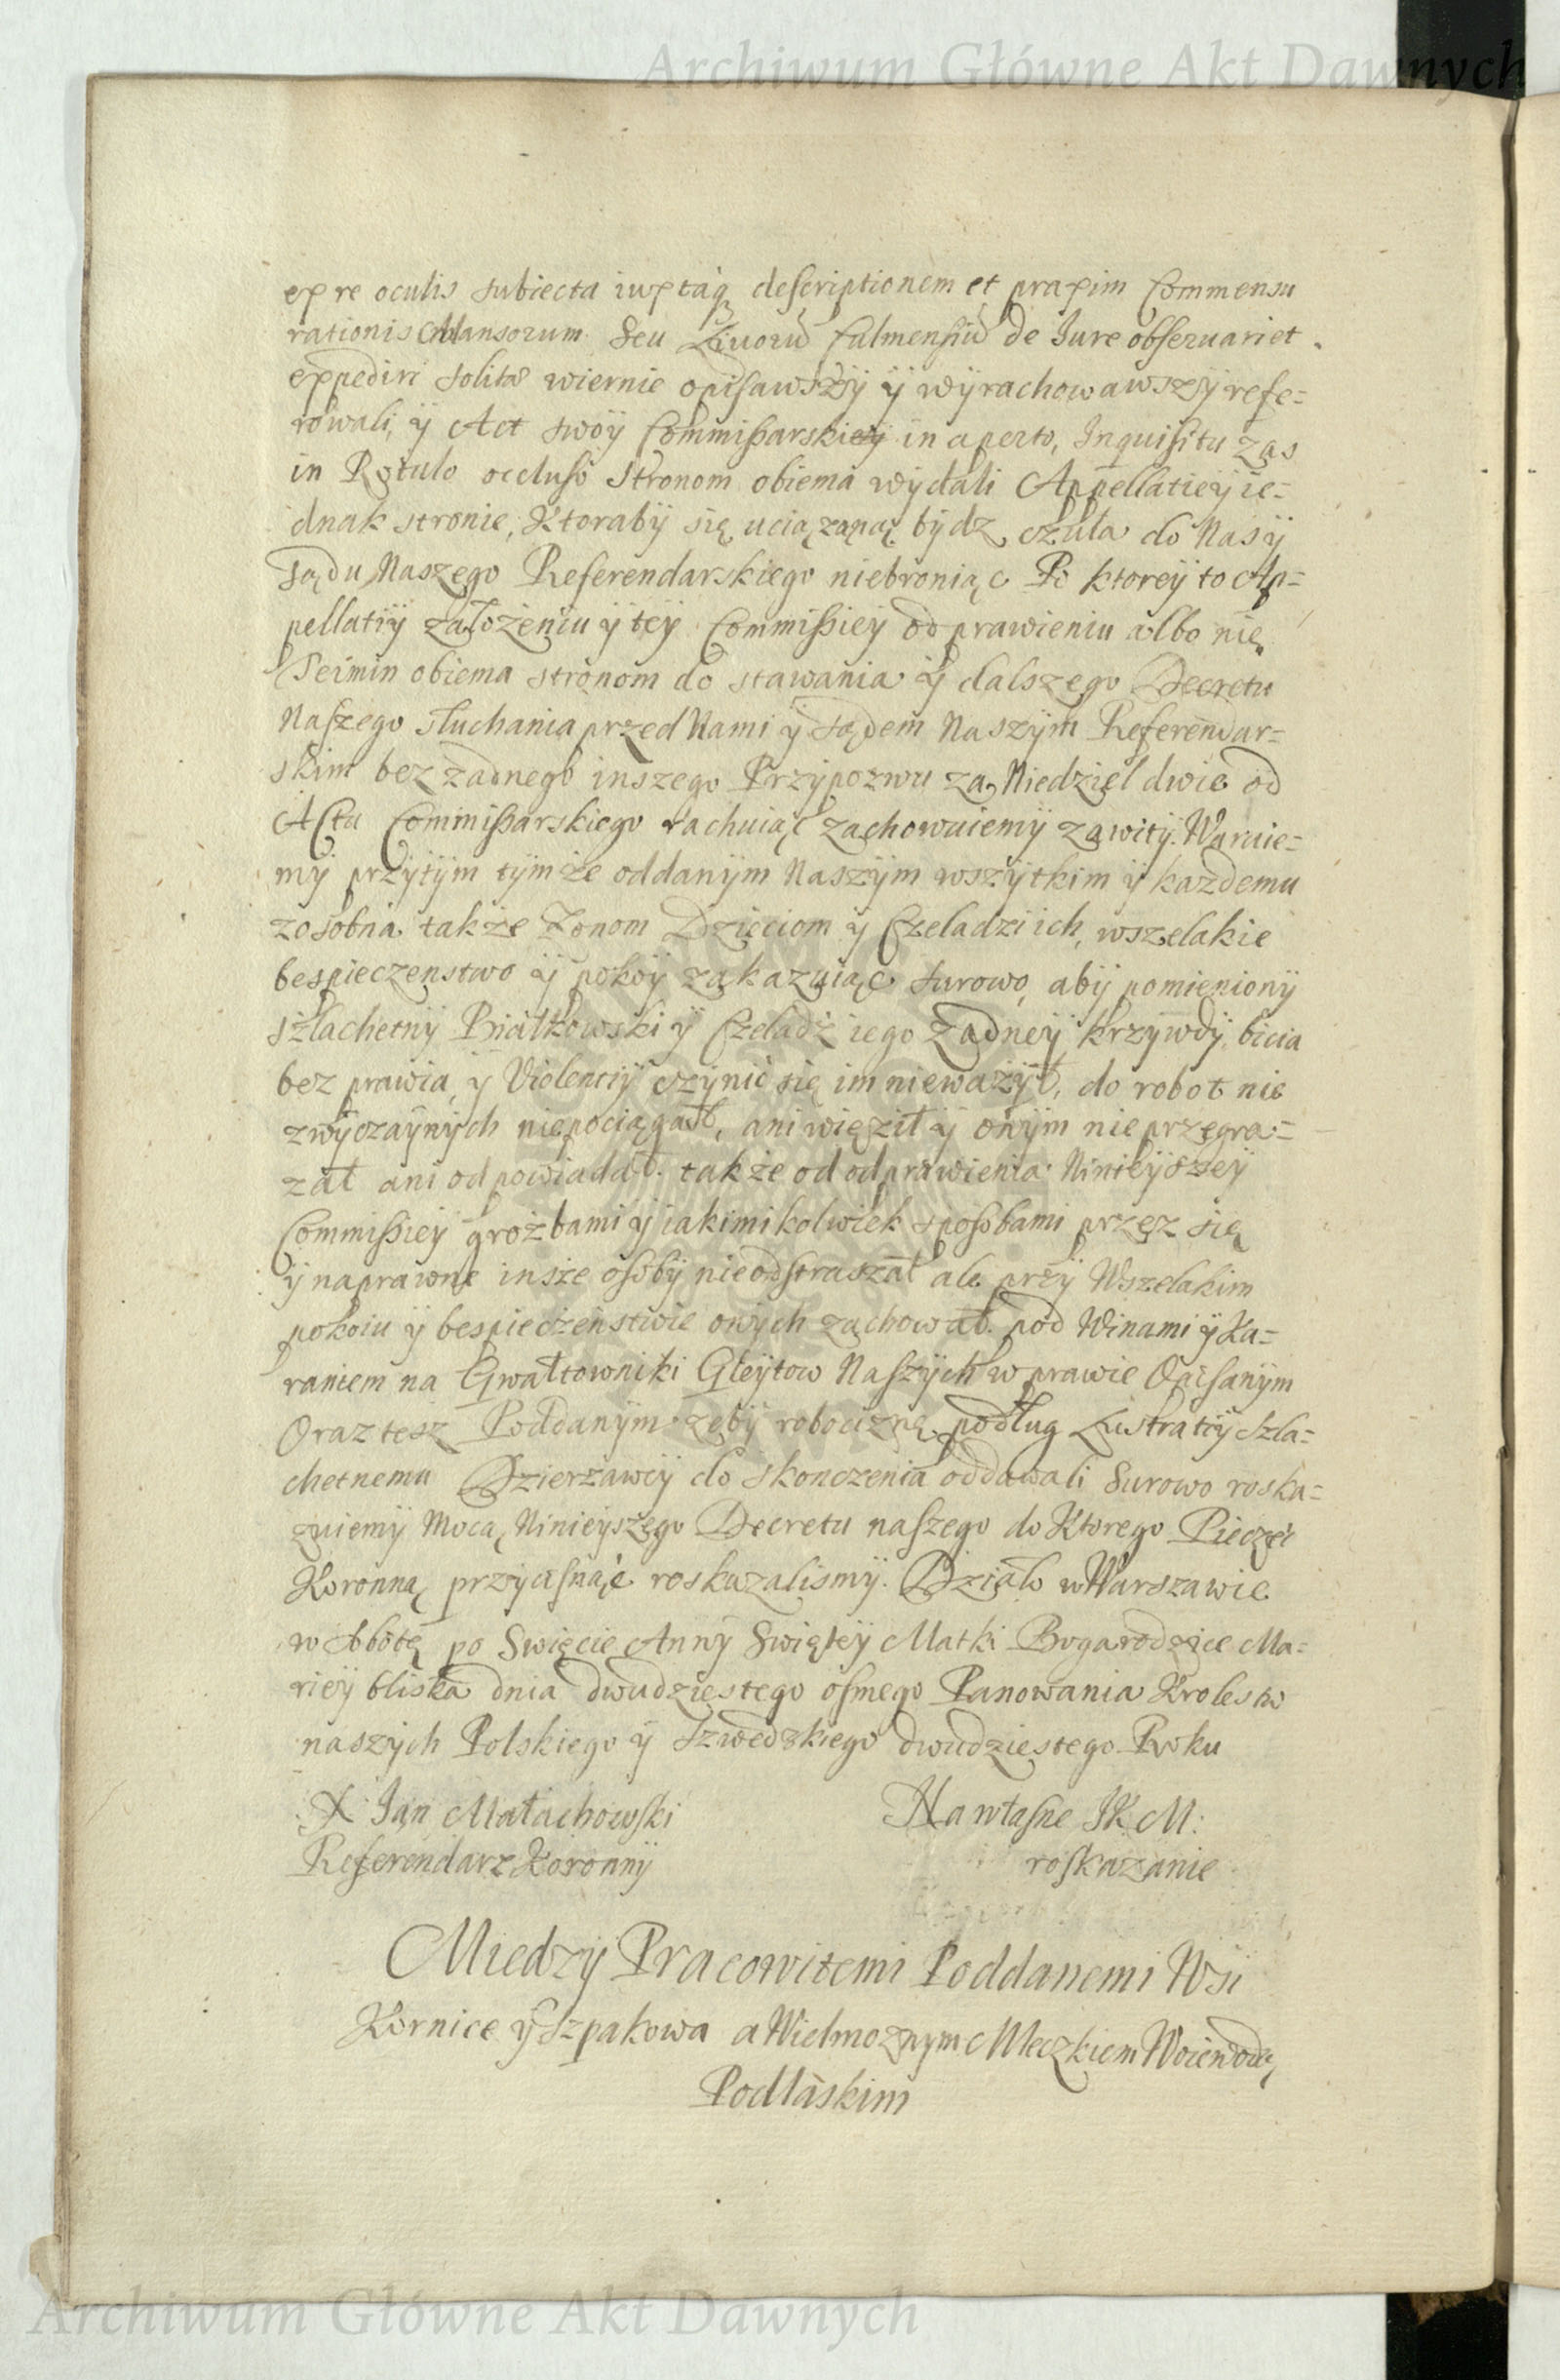 Archiwum Główne Akt Dawnych
ex re oculis subiecta iuxtaq descriptionem et praxim Commensu
rationis Mansorum Seu Livorū Culmensiū de Iure observari et
expediri solita wiernie opisawszÿ ÿ wÿrachowawszÿ refe=
rowali, ÿ Act swoÿ Commissarskieÿ in aperto, Inquisitu zas
in Rotulo occluso Stronom obiema wÿdali Appellatieÿ ie=
dnak stronie, Ktorabÿ się uciązaną bÿdz czuła do Nas ÿ
Sądu Naszego Referendarskiego niebroniąc Po ktoreÿ to Ap=
pellatiÿ założeniu ÿ teÿ Commissieÿ odprawieniu albo nie
Termin obiema stronom do stawania ÿ dalszego Decretu
Naszego słuchania przed Nami ÿ Sądem Naszÿm Referendar=
skim bez żadnego inszego Przÿpozwu za Niedziel dwie od
Actu Commissarskiego rachuiąc zachowuiemÿ zawitÿ. Waruie=
mÿ przÿtÿm tÿmże oddanÿm Naszÿm wszÿtkim ÿ każdemu
zosobna także Zonom Dzieciom ÿ Czeladzi ich, wszelakie
bespieczenstwo ÿ pokoÿ zakazuiąc surowo, abÿ pomienionÿ
szlachetnÿ Białkowski ÿ Czeladź iego żadneÿ krzÿwdÿ, bicia
bez prawia, ÿ Violencÿ czÿnić się im nieważÿł, do robot nie
zwÿczaÿnÿch niepociągał, ani więził ÿ onÿm nie przegra=
zał ani odpowiadał. także od odprawienia Ninieÿszeÿ
Commissieÿ groźbami ÿ iakimikolwiek sposobami przez się
ÿ naprawne insze osobÿ nieodstraszał ale przÿ Wszelakim
pokoiu ÿ bespieczenstwie onÿch zachował. pod Winami ÿ Ka=
raniem na Gwałtowniki Gleÿtow Naszÿch w prawie Opisanÿm
Oraz tesz Poddanÿm zebÿ robociznę podług Lustratiÿ Szla=
chetnemu Dzierzawcÿ do skonczenia oddawali Surowo roska=
zuiemÿ Mocą Ninieÿszego Decretu naszego do Ktorego Pieczęc
Koronną przÿcisnąć roskazalismÿ. Działo w Warszawie
w Sobotę po Swięcie Annÿ Swięteÿ Matki Bogarodzice Ma=
rieÿ bliską dnia dwudziestego osmego Panowania Krolestw
naszÿch Polskiego ÿ Szwedzkiego dwudziestego Roku
X Jan Małachowski
Referendarz Koronnÿ
Na własne JK M:
roskazanie
Miedzÿ Pracowitemi Poddanemi Wsi
Kornice ÿ Szpakowa a Wielmoznym Mleczkiem Woiewodą
Podlaskim
Archiwum Główne Akt Dawnych